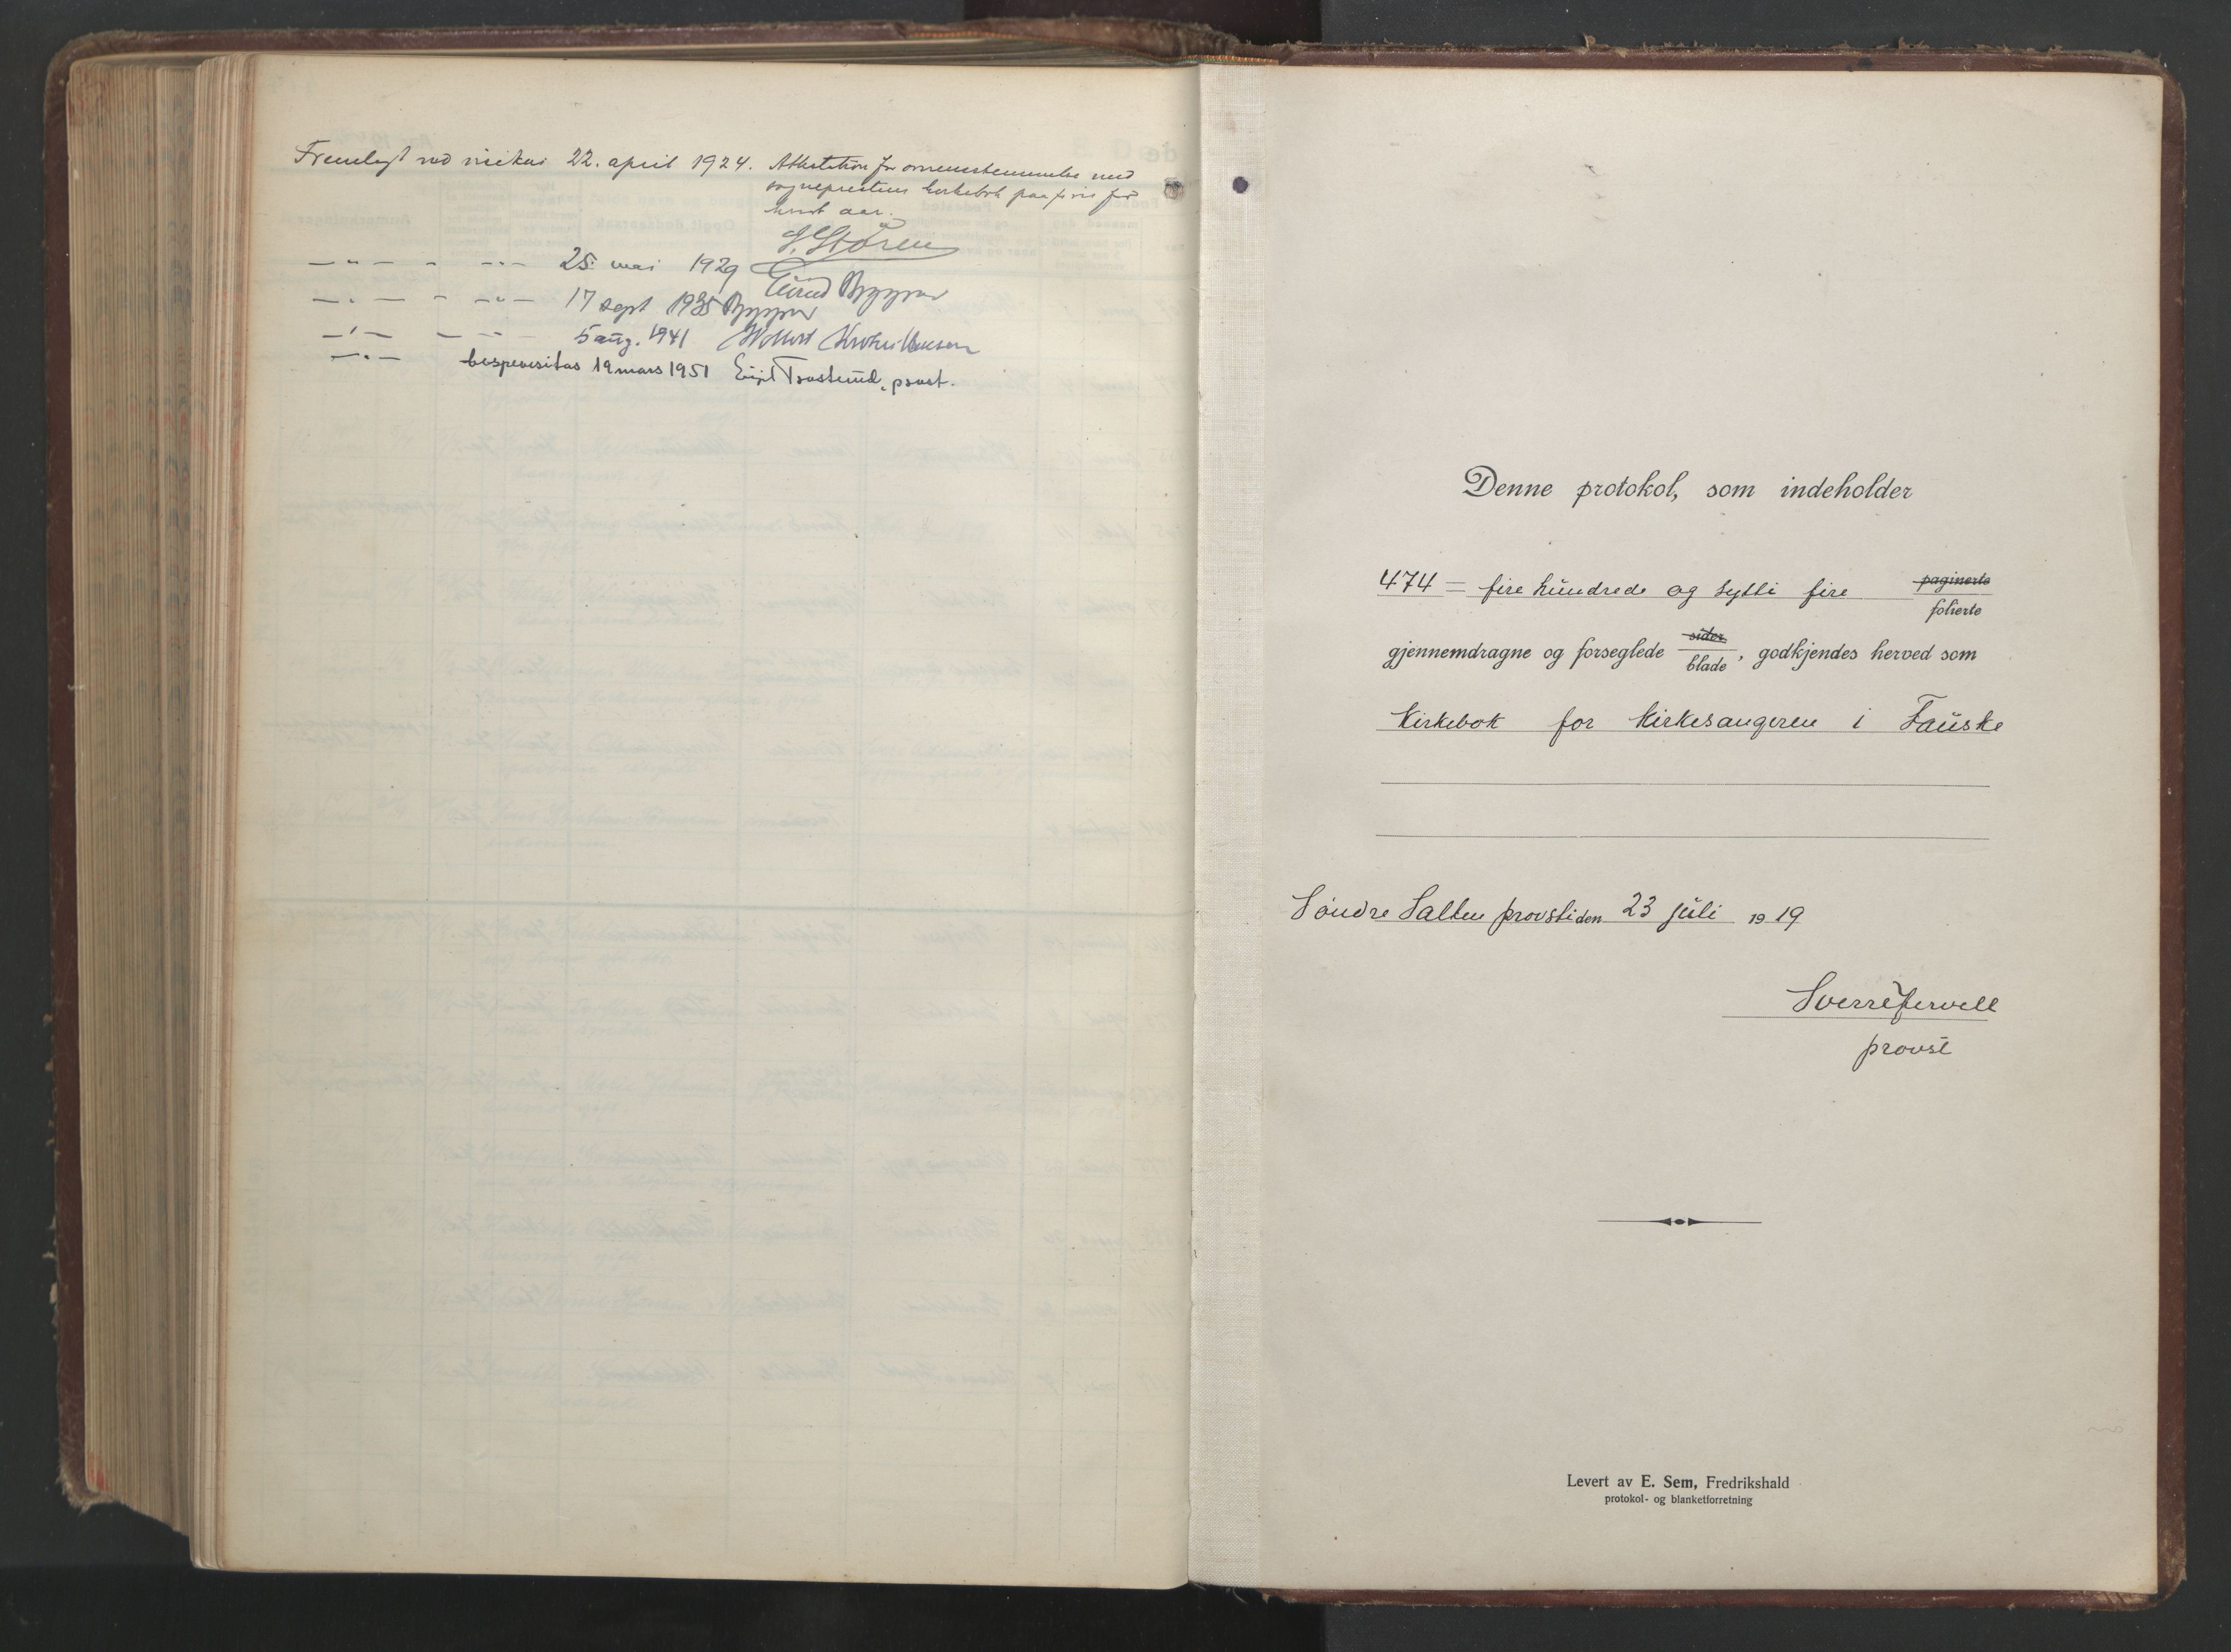 Fremlagt ved visitas 22. april 1924. Attestation for overensstemmelse med
sogneprestens kirkebok paaføres for
hvert aar.
S. Støren
— " — - — " — 25. mai 1929 Eivind Byggvar
— " — - — " — 17 sept 1935 Byggvar
— " — — " — 5 aug. 1941 Wollert Krohn
— " — bispevisitas 19 mars 1951 Tvosteruud, prost.
Denne protokol, som indeholder
474 = fire hundrede og sytti fire paginerte
folierte
gjennemdragne og forseglede sider
blade, godkjendes herved som
Kirkebok for kirkesangeren i Fauske
Søndre Salten provsti den 23 juli 1919
Sverre Fervell
provst
Levert av E. Sem, Fredrikshald
protokol- og blanketforretning